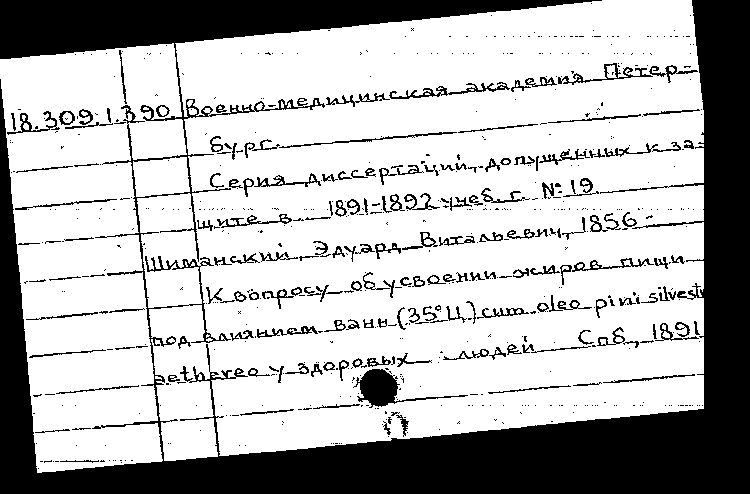 18.309.1.390. Военно-медицинская академия Петер-
бург.
Серия диссертаций, допущенных к за-
щите в 1891-1892 учеб. г. № 19
Шиманский, Эдуард Витальевич, 1856-
К вопросу об усвоении жиров пищи
под влиянием ванн (35°Ц) cum oleo pini silvestr
aethereo у здоровых людей Спб, 1891